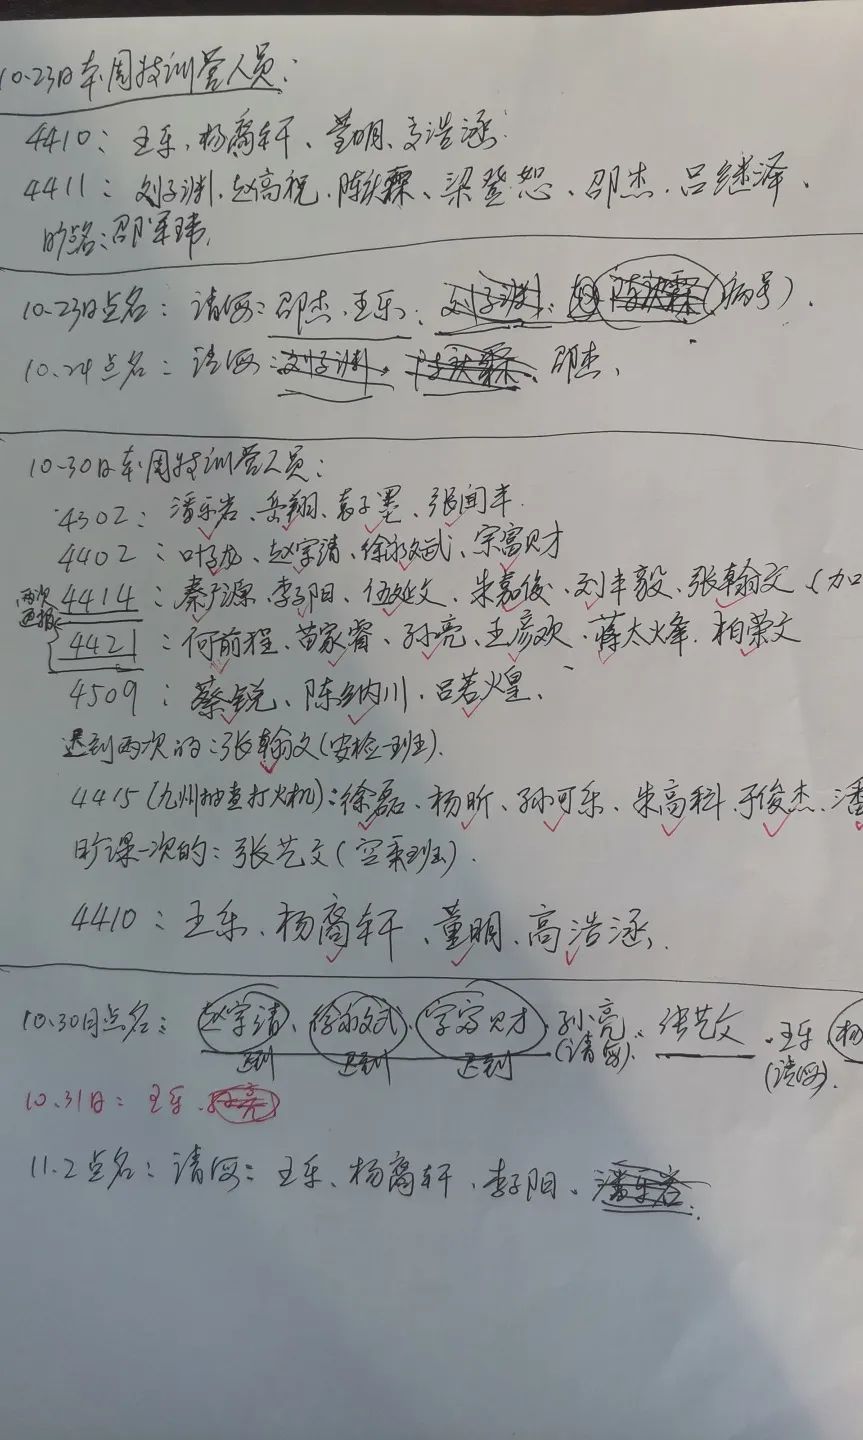 10.23日本周技训营人员：
4410：王乐、杨裔轩、董明、高浩涵
4411：刘子渊、赵高祝、陈霖、梁登恕、邵杰、吕继泽、
旷点名：邵军玮
10.23日点名：请假：邵杰、王乐、刘子渊、（病号）.
10.24点名：请假：刘子渊、邵杰、
10.30日本周技训营人员：
4302：潘乐岩、岳翔、袁子墨、张闻丰.
4402：叶子龙、赵宇清、徐永斌、宗富财
两次通报 4414：秦广源、李子阳、伍延文、朱嘉俊、刘丰毅、张翰文、(加
4421：何前程、苗家睿、孙亮、王彦欢、蒋太火、柏荣文
4509：蔡锐、陈纳川、吕若煌、
迟到两次的：张翰文(安检一班).
4415(九州抽查打火机)：徐磊、杨昕、孙可乐、朱高科、于俊杰、潘
旷课一次的：张艺文(空乘班).
4410：王乐、杨裔轩、董明、高浩涵.
10.30日点名：赵宇清、徐永斌、宗富财、孙亮、张艺文、王乐、杨
迟到 迟到 迟到 (请假). (请假).
10.31日：王乐、孙亮
11.2点名：请假：王乐、杨裔轩、李子阳、潘乐岩.